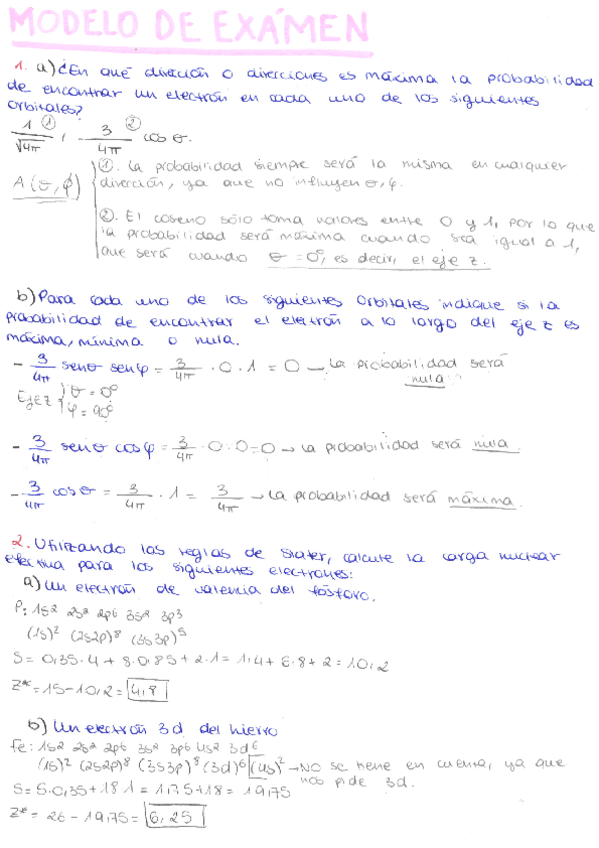 MODELO DE EXÁMEN
1. a) ¿En qué dirección o direcciones es máxima la probabilidad
de encontrar un electrón en cada uno de los siguientes
orbitales?
1/√4π ①, 3/4π ② cos θ.
A(θ,φ)
①. La probabilidad siempre será la misma en cualquier
dirección, ya que no influyen θ, φ.
②. El coseno sólo toma valores entre 0 y 1, por lo que
la probabilidad será máxima cuando sea igual a 1,
que será cuando θ = 0º, es decir, el eje z.
b) Para cada uno de los siguientes orbitales indique si la
probabilidad de encontrar el electrón a lo largo del eje z es
máxima, mínima o nula.
- 3/4π senθ senφ = 3/4π · 0 · 1 = 0 → La probabilidad será
nula.
Eje z { θ = 0º
φ = 90º
- 3/4π senθ cosφ = 3/4π · 0 · 0 = 0 → La probabilidad será nula.
- 3/4π cosθ = 3/4π · 1 = 3/4π → La probabilidad será máxima.
2. Utilizando las reglas de Slater, calcule la carga nuclear
efectiva para los siguientes electrones:
a) Un electrón de valencia del fósforo.
P: 1s² 2s² 2p6 3s² 3p3
(1s)² (2s2p)⁸ (3s3p)⁵
S = 0,35·4 + 8·0,85 + 2·1 = 1,4 + 6,8 + 2 = 10,2
Z* = 15 - 10,2 = 4,8
b) Un electrón 3d del hierro
Fe: 1s² 2s² 2p6 3s² 3p6 4s² 3d⁶
(1s)² (2s2p)⁸ (3s3p)⁸ (3d)⁶ (4s)² → NO se tiene en cuenta, ya que
nos pide 3d.
S = 5·0,35 + 18·1 = 1,75 + 18 = 19,75
Z* = 26 - 19,75 = 6,25